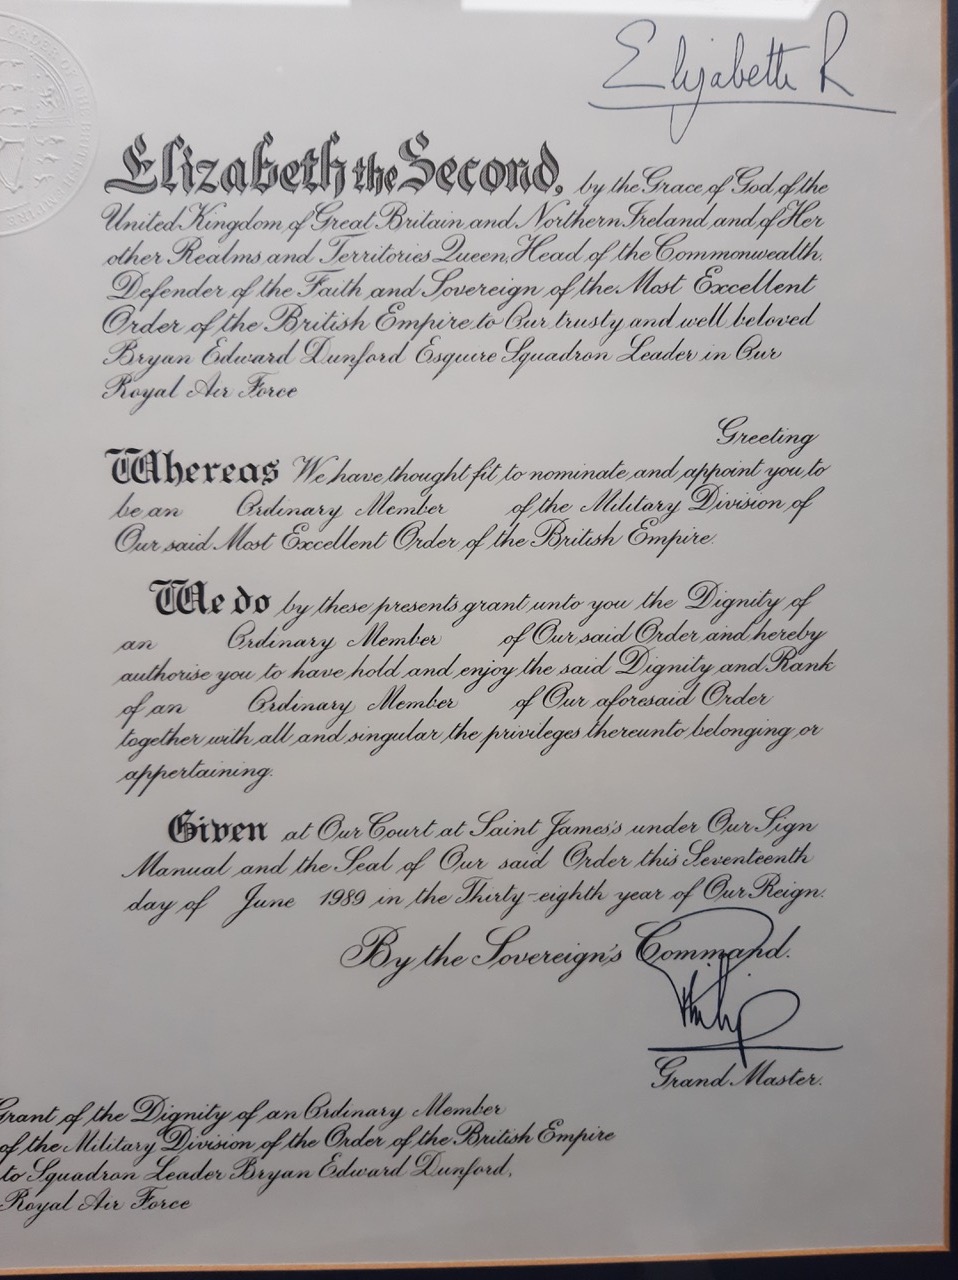 Elizabeth R
Elizabeth the Second, by the Grace of God, of the
United Kingdom of Great Britain and Northern Ireland and of Her
other Realms and Territories Queen, Head of the Commonwealth,
Defender of the Faith and Sovereign of the Most Excellent
Order of the British Empire to Our trusty and well beloved
Bryan Edward Dunford Esquire Squadron Leader in Our
Royal Air Force
Greeting
Whereas We have thought fit to nominate and appoint you to
be an Ordinary Member of the Military Division of
Our said Most Excellent Order of the British Empire.
We do by these presents grant unto you the Dignity of
an Ordinary Member of Our said Order and hereby
authorise you to have hold and enjoy the said Dignity and Rank
of an Ordinary Member of Our aforesaid Order
together with all and singular the privileges thereunto belonging or
appertaining.
Given at Our Court at Saint James's under Our Sign
Manual and the Seal of Our said Order this Seventeenth
day of June 1989 in the Thirty-eighth year of Our Reign.
By the Sovereign's Command.
Philip
Grand Master.
Grant of the Dignity of an Ordinary Member
of the Military Division of the Order of the British Empire
to Squadron Leader Bryan Edward Dunford,
Royal Air Force